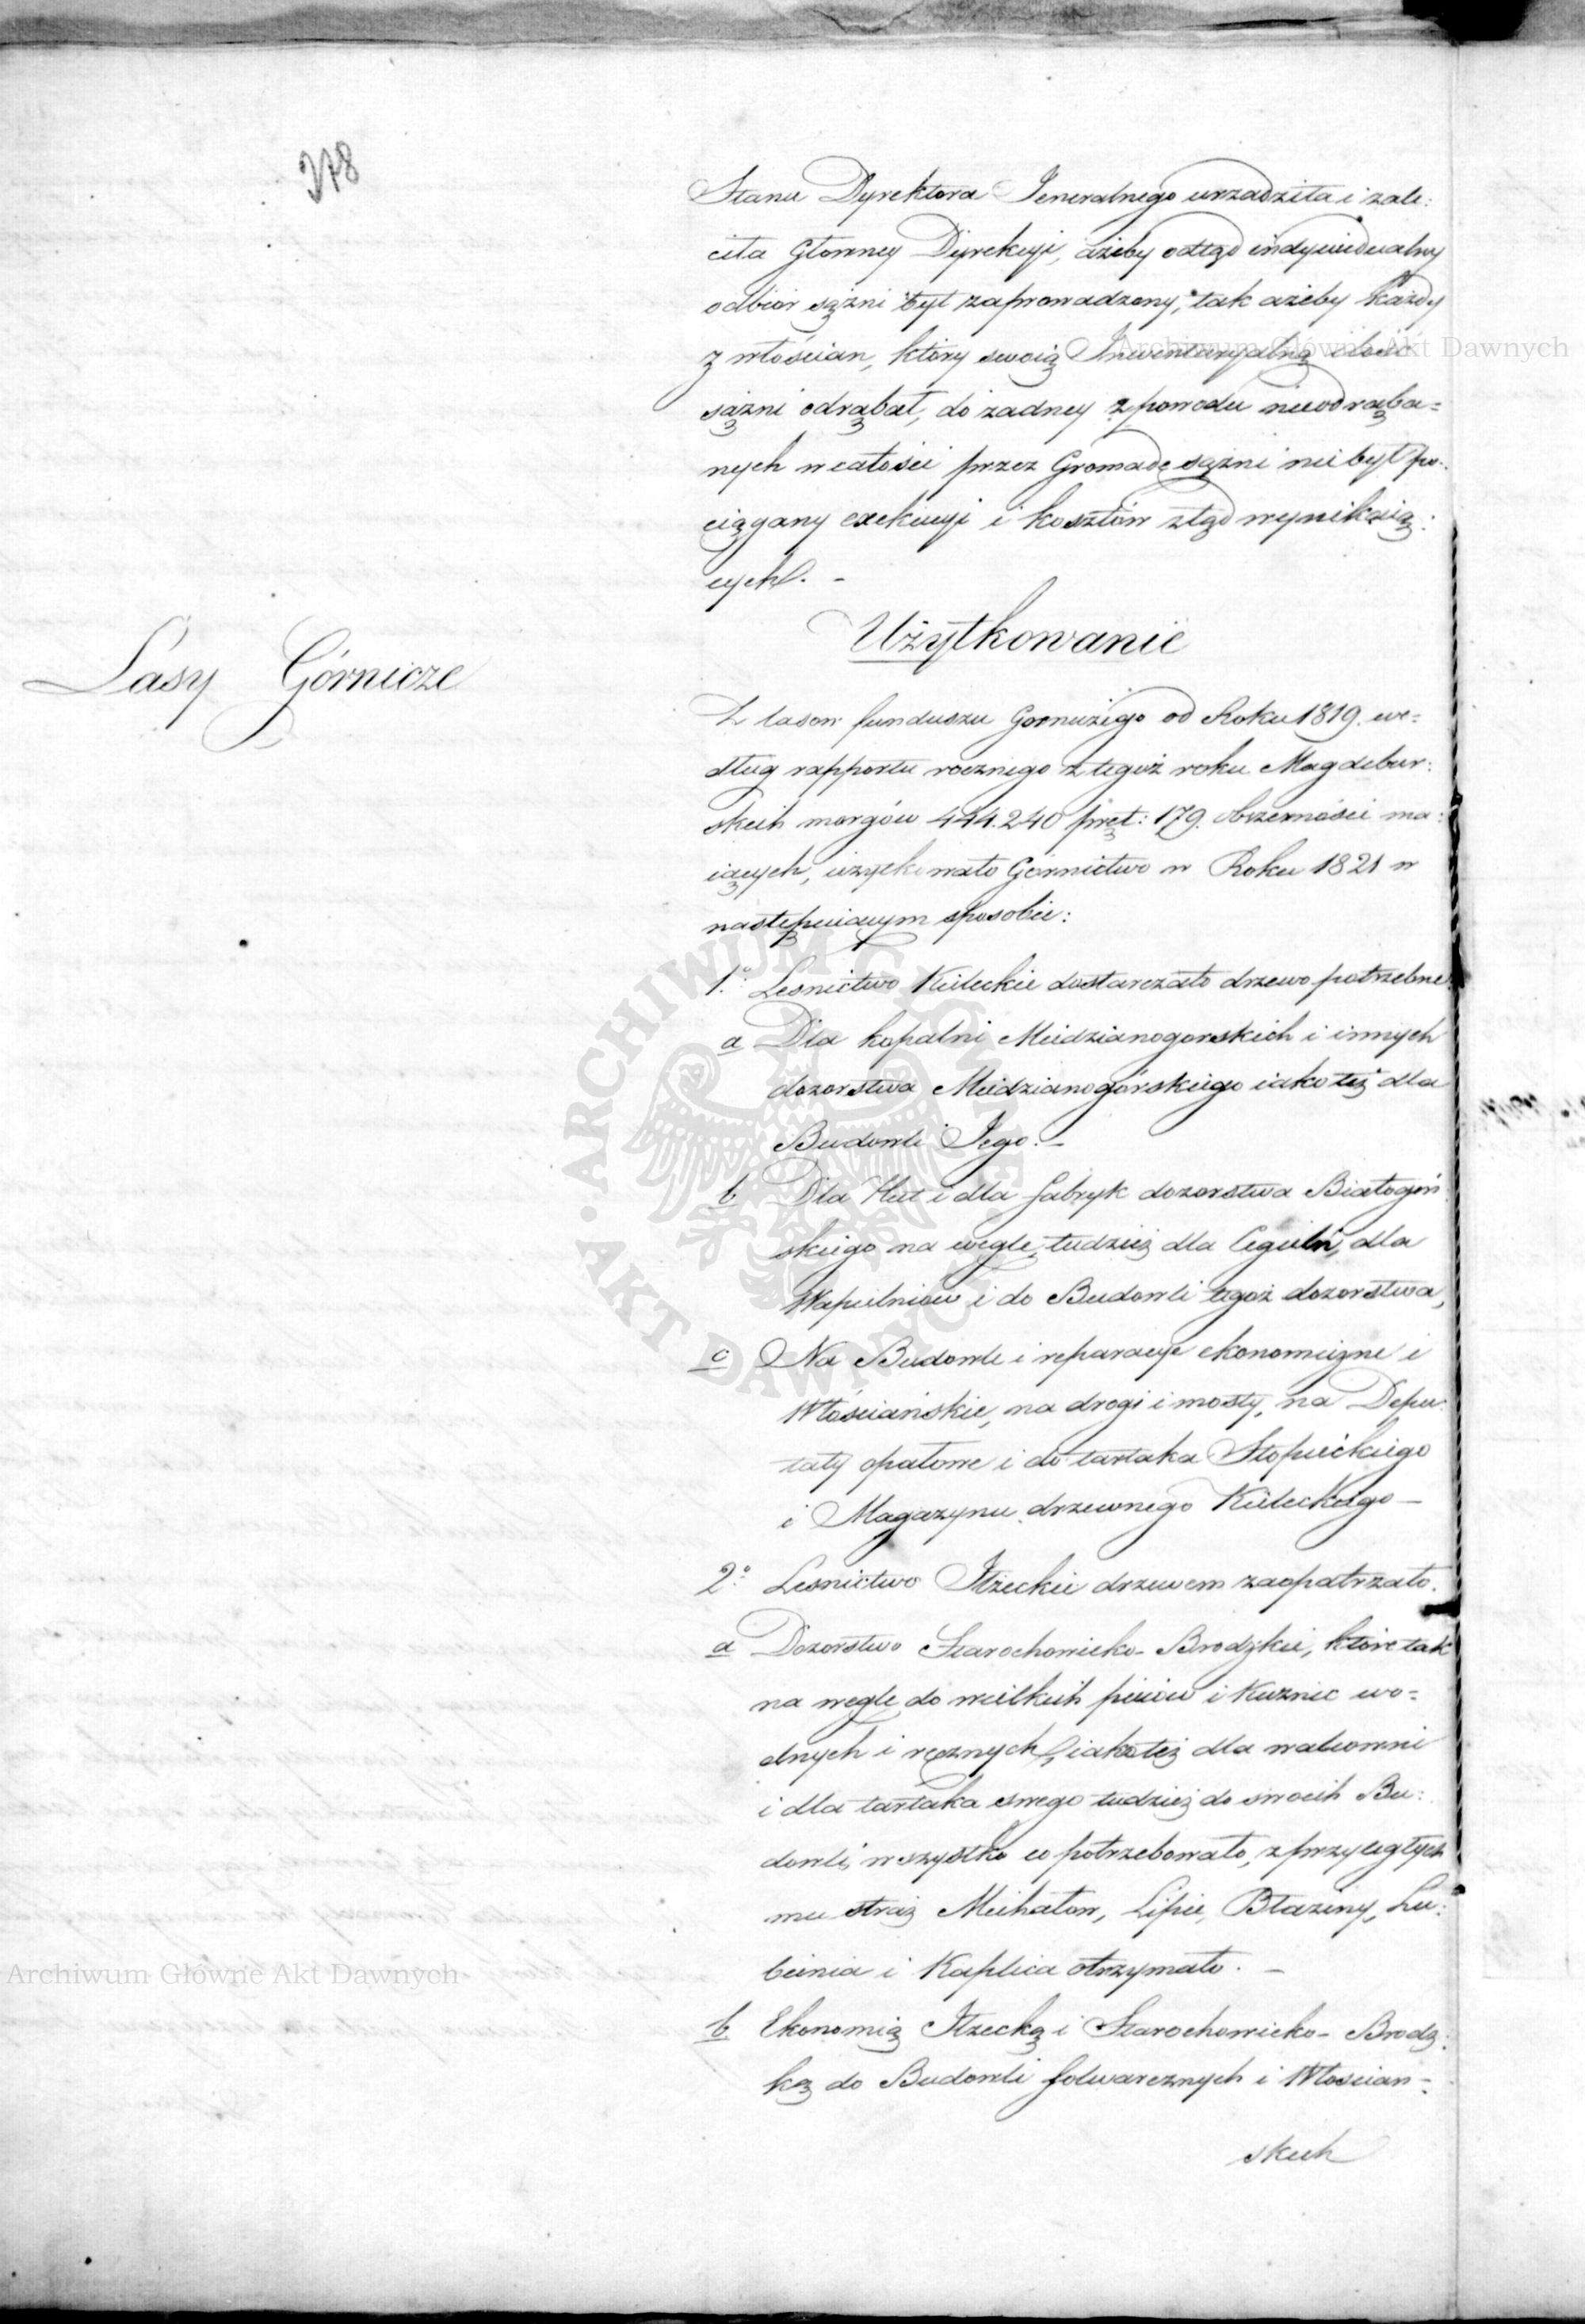 378
Stanu Dyrektora Jeneralnego urządziła i zale:
ciła Głowney Dyrekcyi, ażeby odtąd indywidualny
odbiór sążni był zaprowadzony, tak ażeby każdy
z włościan, który swoią Inwentaryalną ilość
sążni odrąbał, do żadney z powodu nieodrąba=
nych w całości przez Gromadę sążni nie był po:
ciągany exekucyi i kosztów ztąd wynikaią:
cych. -
Użytkowanie
Lasy Górnicze
Z lasow funduszu Gorniczego od Roku 1819. we=
dług rapportu rocznego z tegoż roku Magdebur:
skich morgów 444.240 pręt: 179. obszerności ma:
iących, użytkowało Górnictwo w Roku 1821 w
następuiącym sposobie:
1.o Lesnictwo Kieleckie dostarczało drzewo potrzebne
a Dla kopalni Miedzianogorskich i innych
dozorstwa Miedzianogórskiego iako też dla
Budowli Jego. -
b Dla Hut i dla fabryk dozorstwa Białogoń
skiego na węgle, tudzież dla Cegielń, dla
Wapielniów i do Budowli tegoż dozorstwa,
c Na Budowle i reparacye ekonomiczne i
Włościańskie, na drogi i mosty, na Depu:
taty opałowe i do tartaka Słopieckiego
i Magazynu drzewnego Kieleckiego -
2.o Lesnictwo Iłżeckie drzewem zaopatrzało.
a Dozorstwo Starochowicko-Brodzkie, które tak
na węgle do wielkich pieców i Kuznic wo=
dnych i ręcznych, iako też dla walcowni
i dla tartaka swego tudzież do swoich Bu:
dowli, wszystko co potrzebowało, z przyległych
mu straż Michałow, Lipie, Błaziny, Lu:
bienia i Kaplica otrzymało. -
b Ekonomią Iłzecką i Starochowicko-Brodz:
ką do Budowli folwarcznych i Włoscian=
skich
Archiwum Główne Akt Dawnych
Archiwum Główne Akt Dawnych
ARCHIWUM GŁÓWNE · AKT DAWNYCH ·